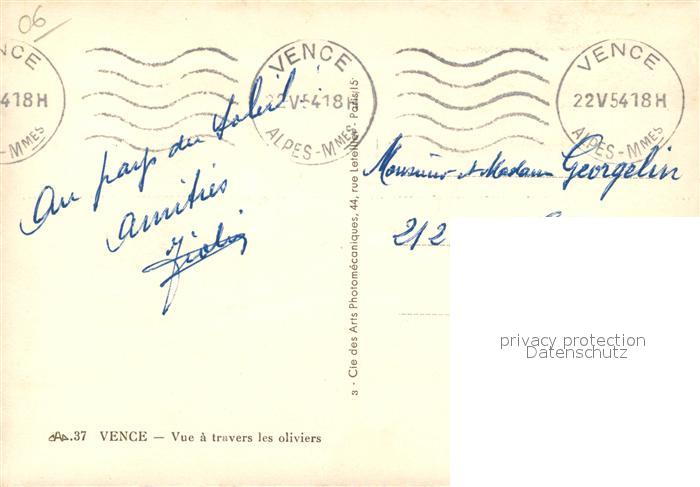 06
VENCE
22V5418H
ALPES-MMES
VENCE
22V5418H
ALPES-MMES
VENCE
5418H
MMES
Au pays du soleil !
amitiés
Monsieur et Madame Georgelin
212
3 - Cie des Arts Photomécaniques, 44, rue Letellier - Paris 15
privacy protection
Datenschutz
.37 VENCE — Vue à travers les oliviers